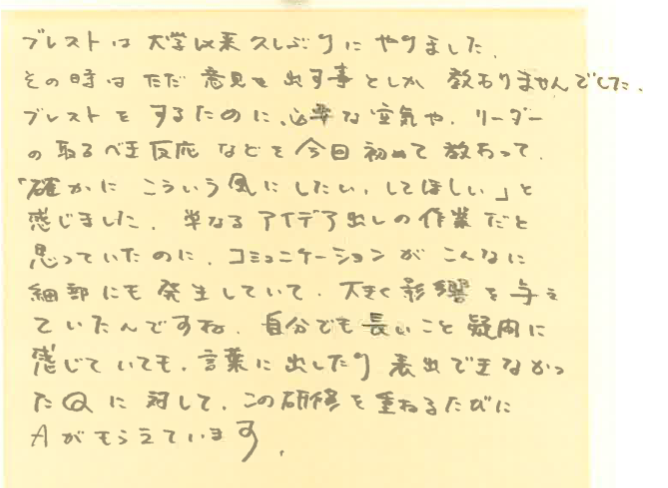 ブレストは大学以来久しぶりにやりました。
その時はただ意見を出す事としか教わりませんでした。
ブレストをするために、必要な空気や、リーダー
の取るべき反応などを今回初めて教わって、
「確かにこういう風にしたい、してほしい」と
感じました。単なるアイデア出しの作業だと
思っていたのに、コミュニケーションがこんなに
細部にも発生していて、大きく影響を与え
ていたんですね。自分でも長いこと疑問に
感じていても、言葉に出したり表出できなかっ
たQに対して、この研修を重ねるたびに
Aがもらえています。